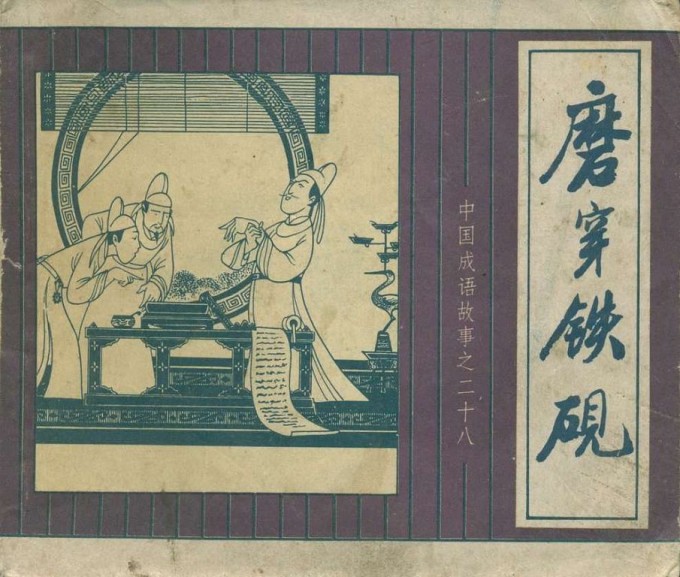 磨穿铁砚
中国成语故事之二十八